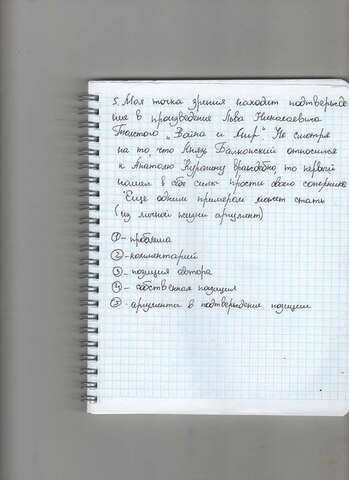 5. Моя точка зрения находит подтвержде
ние в произведении Льва Николаевича
Толстого „Война и Мир". Не смотря
на то, что Князь Балконский относился
к Анатолю Курагину враждебно, то первый
нашел в себе силы простить своего соперника
"Еще одним примером может стать
(из личной жизни аргумент)
① - проблема
② - комментарий
③ - позиция автора
④ - собственная позиция
⑤ - аргументы в подтверждение позиции